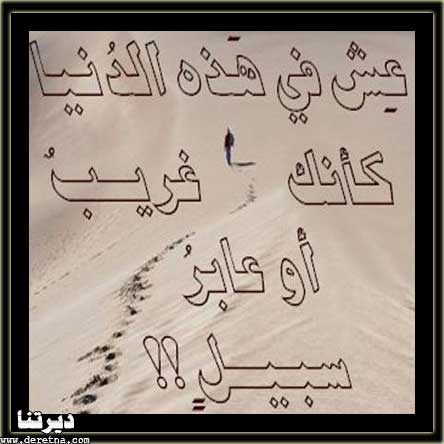 عِش في هَذه الدُنيا
كأنك غريبُ
أو عابرُ
سبيلٍ !!
ديرتنا
www.deretna.com